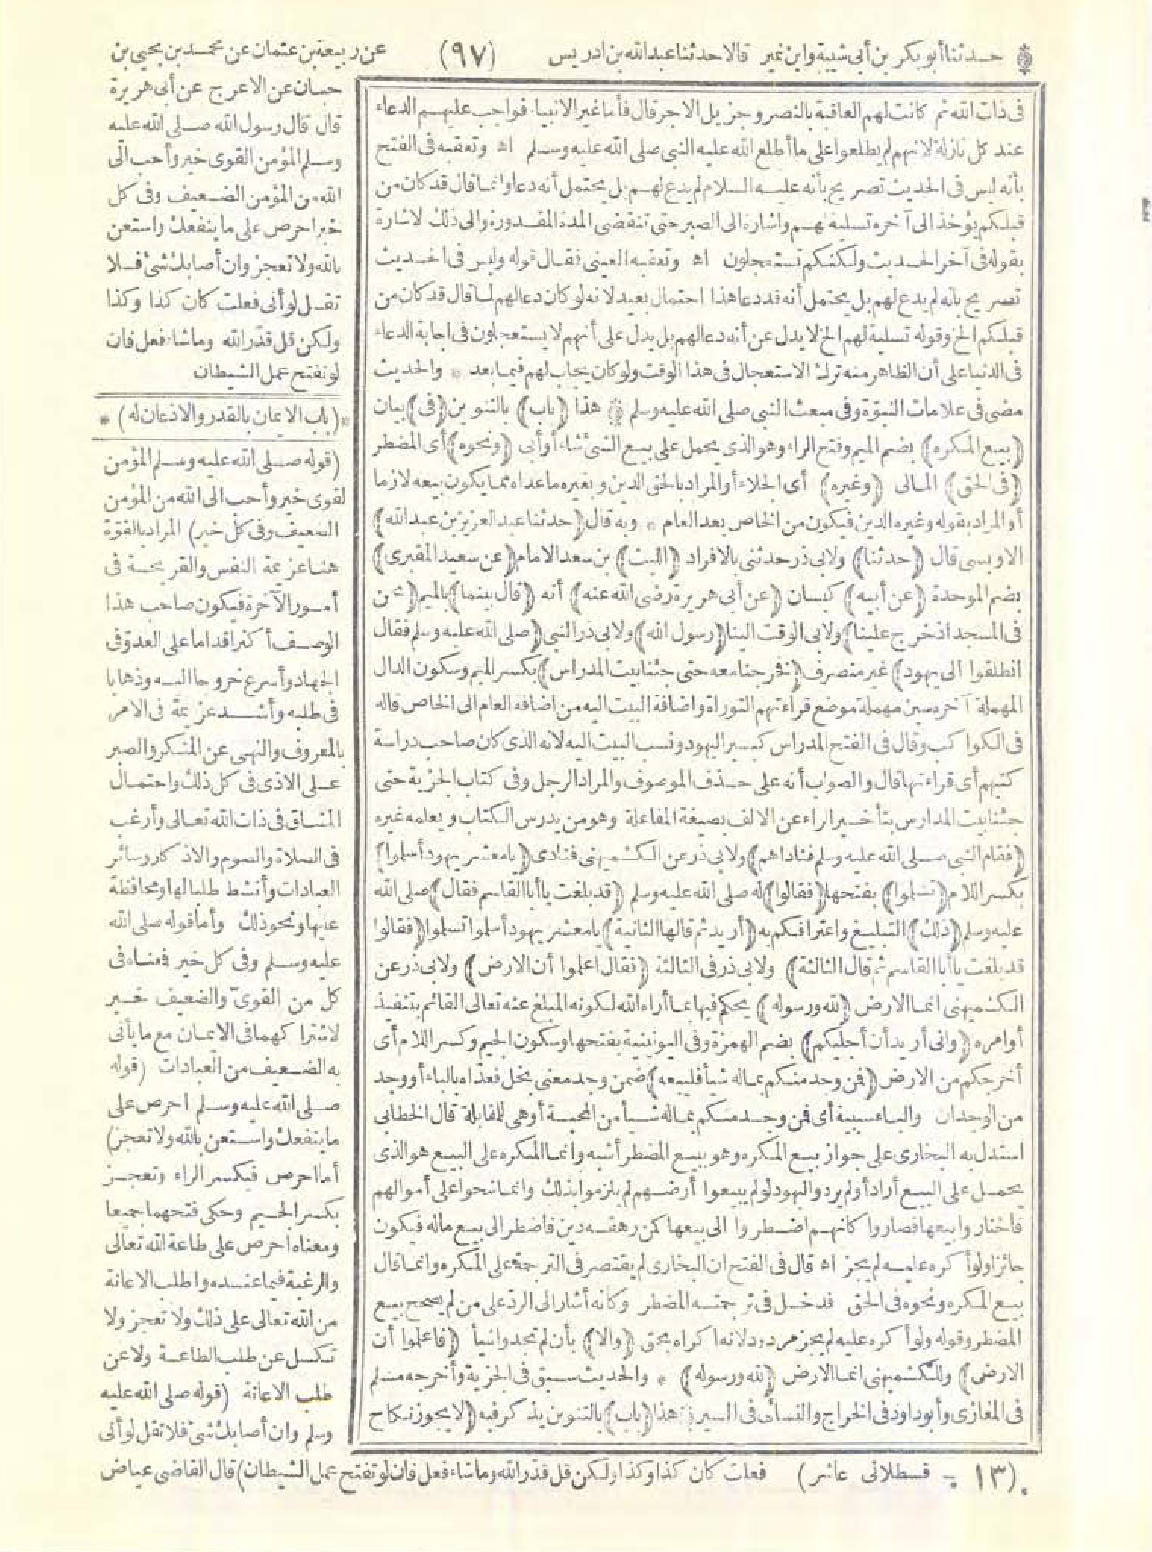 حدثنا أبو بكر بن أبي شيبة وابن نمير قالا حدثنا عبد الله بن ادريس (٩٧) عن ربيعة بن عثمان عن محمد بن يحيى بن
حبان عن الاعرج عن أبى هريرة
قال قال رسول الله صلى الله عليه
وسلم المؤمن القوى خير وأحب الى
الله من المؤمن الضعيف وفى كل
خير احرص على ما ينفعك واستعن
بالله ولا تعجز وان أصابك شئ فلا
تقل لو أنى فعلت كان كذا وكذا
ولكن قل قدّر الله وما شاء فعل فان
لو تفتح عمل الشيطان
*(باب الايمان بالقدر والاذعان له)*
(قوله صلى الله عليه وسلم المؤمن
القوى خير وأحب الى الله من المؤمن
الضعيف وفى كل خير) المراد بالقوة
هنا عزيمة النفس والقريحة فى
أمور الآخرة فيكون صاحب هذا
الوصف أكثر اقداما على العدوّ فى
الجهاد وأسرع خروجا اليه وذهابا
فى طلبه وأشد عزيمة فى الامر
بالمعروف والنهى عن المنكر والصبر
على الاذى فى كل ذلك واحتمال
المشاق فى ذات الله تعالى وأرغب
فى الصلاة والصوم والاذكار وسائر
العبادات وأنشط طلبا لها ومحافظة
عليها ونحو ذلك وأما قوله صلى الله
عليه وسلم وفى كل خير فمعناه فى
كل من القوىّ والضعيف خير
لاشتراكهما فى الايمان مع ما يأتى
به الضعيف من العبادات (قوله
صلى الله عليه وسلم احرص على
ما ينفعك واستعن بالله ولا تعجز)
أما احرص فبكسر الراء وتعجز
بكسر الجيم وحكى فتحهما جميعا
ومعناه احرص على طاعة الله تعالى
والرغبة فيما عنده واطلب الاعانة
من الله تعالى على ذلك ولا تعجز ولا
تكسل عن طلب الطاعة ولا عن
طلب الاعانة (قوله صلى الله عليه
وسلم وان أصابك شئ فلا تقل لو أنى
فى ذات الله ثم كانت لهم العاقبة بالنصر وجزيل الاجر قال فأما غير الانبياء فواجب عليهم الدعاء
عند كل نازلة لانهم لم يطلعوا على ما أطلع الله عليه النبى صلى الله عليه وسلم اه وتعقبه فى الفتح
بأنه ليس فى الحديث تصريح بأنه عليه السلام لم يدع لهم بل يحتمل أنه دعا وانما قال قد كان من
قبلكم يؤخذ الى آخره تسلية لهم واشارة الى الصبر حتى تنقضى المدة المقدورة والى ذلك الاشارة
بقوله فى آخر الحديث ولكنكم تستعجلون اه وتعقبه العينى فقال قوله وليس فى الحديث
تصريح بأنه لم يدع لهم بل يحتمل أنه قد دعا هذا احتمال بعيد لانه لو كان دعا لهم لما قال قد كان من
قبلكم الخ وقوله تسلية لهم الخ لا يدل عن أنه دعا لهم بل يدل على أنهم لا يستعجلون فى اجابة الدعاء
فى الدنيا على أن الظاهر منه ترك الاستعجال فى هذا الوقت ولو كان يجاب لهم فيما بعد * والحديث
مضى فى علامات النبوّة وفى مبعث النبى صلى الله عليه وسلم هذا (باب) بالتنوين (فى) بيان
(بيع المكره) بضم الميم وفتح الراء وهو الذى يحمل على بيع الشئ شاء أو أبى (ونحوه) أى المضطر
(فى الحق) المالى (وغيره) أى الجلاء أو المراد بالحق الدين وبغيره ما عداه مما يكون بيعه لازما
أو المراد بقوله وغيره الدين فيكون من الخاص بعد العام * وبه قال (حدثنا عبد العزيز بن عبد الله)
الاويسى قال (حدثنا) ولابى ذر حدثنى بالافراد (الليث) بن سعد الامام (عن سعيد المقبرى)
بضم الموحدة (عن أبيه) كيسان (عن أبى هريرة رضى الله عنه) أنه (قال بينما) بالميم (نحن
فى المسجد اذ خرج علينا) ولابى الوقت الينا (رسول الله) ولابى ذر النبى (صلى الله عليه وسلم فقال
انطلقوا الى يهود) غير منصرف (فخرجنا معه حتى جئنا بيت المدراس) بكسر الميم وسكون الدال
المهملة آخره سين مهملة موضع قراءتهم التوراة واضافة البيت اليه من اضافة العام الى الخاص قاله
فى الكواكب وقال فى الفتح المدراس كبير اليهود ونسب البيت اليه لانه الذى كان صاحب دراسة
كتبهم أى قراءتها قال والصواب أنه على حذف الموصوف والمراد الرجل وفى كتاب الجزية حتى
جئنا بيت المدارس بتأخير الراء عن الالف بصيغة المفاعلة وهو من يدرس الكتاب ويعلمه غيره
(فقام النبى صلى الله عليه وسلم فناداهم) ولابى ذر عن الكشميهنى فنادى (يا معشر يهود أسلموا)
بكسر اللام (تسلموا) بفتحها (فقالوا) له صلى الله عليه وسلم (قد بلغت يا أبا القاسم فقال) صلى الله
عليه وسلم (ذلك) التبليغ واعترافكم به (أريد ثم قالها الثانية) يا معشر يهود أسلموا تسلموا (فقالوا
قد بلغت يا أبا القاسم ثم قال الثالثة) ولابى ذر فى الثالثة (فقال اعلموا أن الارض) ولابى ذر عن
الكشميهنى انما الارض (لله ورسوله) يحكم فيها بما أراه الله لكونه المبلغ عنه تعالى القائم بتنفيذ
أوامره (وانى أريد أن أجليكم) بضم الهمزة وفى اليونينية بفتحها وسكون الجيم وكسر اللام أى
أخرجكم من الارض (فمن وجد منكم بماله شيأ فليبعه) ضمن وجد معنى بخل فعدّاه بالباء أو وجد
من الوجدان والباء سببية أى فمن وجد منكم بماله شيأ من المحبة أو هى للمقابلة قال الخطابى
استدل به البخارى على جواز بيع المكره وهو ببيع المضطر أشبه وانما المكره على البيع هو الذى
يحمل على البيع أراد أو لم يرد واليهود لو لم يبيعوا أرضهم لم يلزموا بذلك وانما شحوا على أموالهم
فاختاروا بيعها فصاروا كأنهم اضطروا الى بيعها كمن رهقه دين فاضطر الى بيع ماله فيكون
جائزا ولو أكره عليه لم يجز اه قال فى الفتح ان البخارى لم يقتصر فى الترجمة على المكره وانما قال
بيع المكره ونحوه فى الحق فدخل فى ترجمته المضطر وكأنه أشار الى الردّ على من لم يصحح بيع
المضطر وقوله ولو أكره عليه لم يجز مردود لانه اكراه بحق (والا) بأن لم تجدوا شيأ (فاعلموا أن
الارض) وللكشميهنى انما الارض (لله ورسوله) * والحديث سبق فى الجزية وأخرجه مسلم
فى المغازى وأبو داود فى الخراج والنسائى فى السير هذا (باب) بالتنوين يذكر فيه (لا يجوز نكاح
(١٣ - قسطلانى عاشر) فعلت كان كذا وكذا ولكن قل قدّر الله وما شاء فعل فان لو تفتح عمل الشيطان) قال القاضى عياض